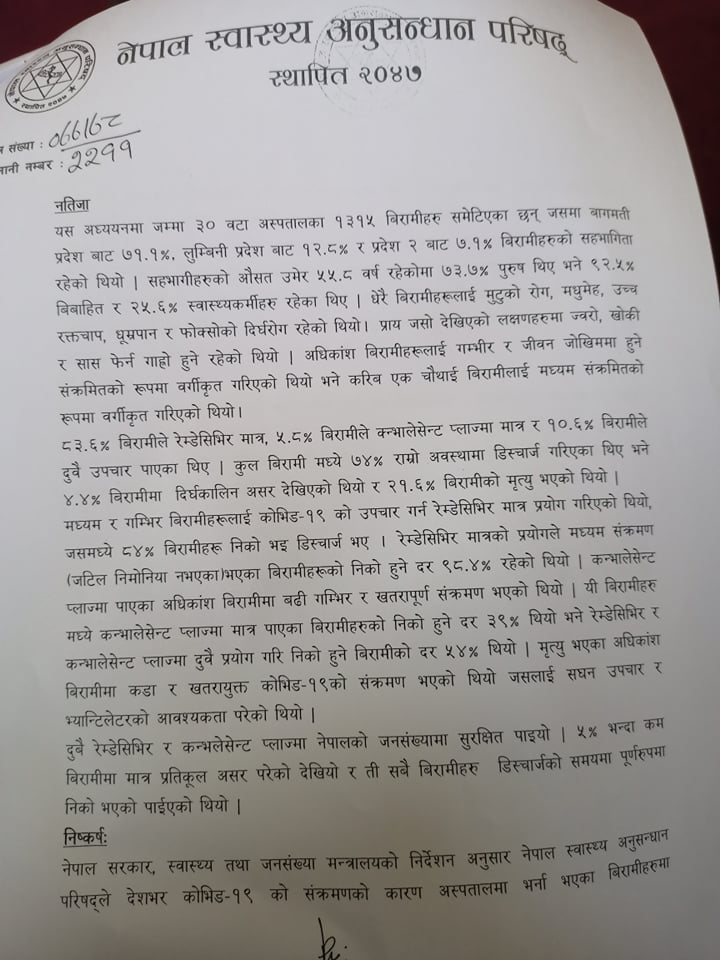 नेपाल स्वास्थ्य अनुसन्धान परिषद्
स्थापित २०४७
संख्या : ०७७/७८
नम्बर : २२११
नतिजा
यस अध्ययनमा जम्मा ३० वटा अस्पतालका १३१५ बिरामीहरु समेटिएका छन् जसमा बागमती
प्रदेश बाट ७१.१%, लुम्बिनी प्रदेश बाट १२.८% र प्रदेश २ बाट ७.१% बिरामीहरुको सहभागिता
रहेको थियो | सहभागीहरुको औसत उमेर ५५.८ वर्ष रहेकोमा ७३.७% पुरुष थिए भने ९२.५%
बिबाहित र २५.६% स्वास्थ्यकर्मीहरु रहेका थिए | धेरै बिरामीहरूलाई मुटुको रोग, मधुमेह, उच्च
रक्तचाप, धूम्रपान र फोक्सोको दिर्घरोग रहेको थियो। प्राय जसो देखिएको लक्षणहरुमा ज्वरो, खोकी
र सास फेर्न गाह्रो हुने रहेको थियो | अधिकांश बिरामीहरुलाई गम्भीर र जीवन जोखिममा हुने
संक्रमितको रूपमा वर्गीकृत गरिएको थियो भने करिब एक चौथाई बिरामीलाई मध्यम संक्रमितको
रूपमा वर्गीकृत गरिएको थियो।
८३.६% बिरामीले रेम्डेसिभिर मात्र, ५.८% बिरामीले कन्भालेसेन्ट प्लाज्मा मात्र र १०.६% बिरामीले
दुवै उपचार पाएका थिए | कुल बिरामी मध्ये ७४% राम्रो अवस्थामा डिस्चार्ज गरिएका थिए भने
४.४% बिरामीमा दिर्घकालिन असर देखिएको थियो र २१.६% बिरामीको मृत्यु भएको थियो |
मध्यम र गम्भिर बिरामीहरूलाई कोभिड-१९ को उपचार गर्न रेम्डेसिभिर मात्र प्रयोग गरिएको थियो,
जसमध्ये ८४% बिरामीहरू निको भइ डिस्चार्ज भए | रेम्डेसिभिर मात्रको प्रयोगले मध्यम संक्रमण
(जटिल निमोनिया नभएका)भएका बिरामीहरूको निको हुने दर ९८.४% रहेको थियो | कन्भालेसेन्ट
प्लाज्मा पाएका अधिकांश बिरामीमा बढी गम्भिर र खतरापूर्ण संक्रमण भएको थियो | यी बिरामीहरु
मध्ये कन्भालेसेन्ट प्लाज्मा मात्र पाएका बिरामीहरुको निको हुने दर ३९% थियो भने रेम्डेसिभिर र
कन्भालेसेन्ट प्लाज्मा दुवै प्रयोग गरि निको हुने बिरामीको दर ५४% थियो | मृत्यु भएका अधिकांश
बिरामीमा कडा र खतरायुक्त कोभिड-१९को संक्रमण भएको थियो जसलाई सघन उपचार र
भ्यान्टिलेटरको आवश्यकता परेको थियो |
दुबै रेम्डेसिभिर र कन्भलेसेन्ट प्लाज्मा नेपालको जनसंख्यामा सुरक्षित पाइयो | ५% भन्दा कम
बिरामीमा मात्र प्रतिकूल असर परेको देखियो र ती सबै बिरामीहरु डिस्चार्जको समयमा पूर्णरुपमा
निको भएको पाईएको थियो |
निष्कर्ष:
नेपाल सरकार, स्वास्थ्य तथा जनसंख्या मन्त्रालयको निर्देशन अनुसार नेपाल स्वास्थ्य अनुसन्धान
परिषद्ले देशभर कोभिड-१९ को संक्रमणको कारण अस्पतालमा भर्ना भएका बिरामीहरुमा